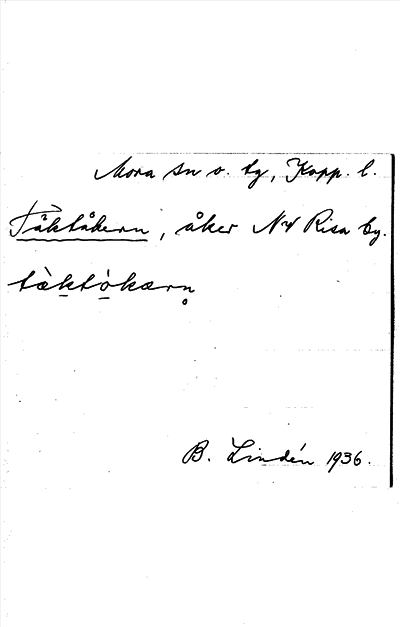 Mora sn o. tg, Kopp. l.
Täktåkern, åker NV Risa by.
tæ̀ktòkærn̥
B. Lindén 1936.